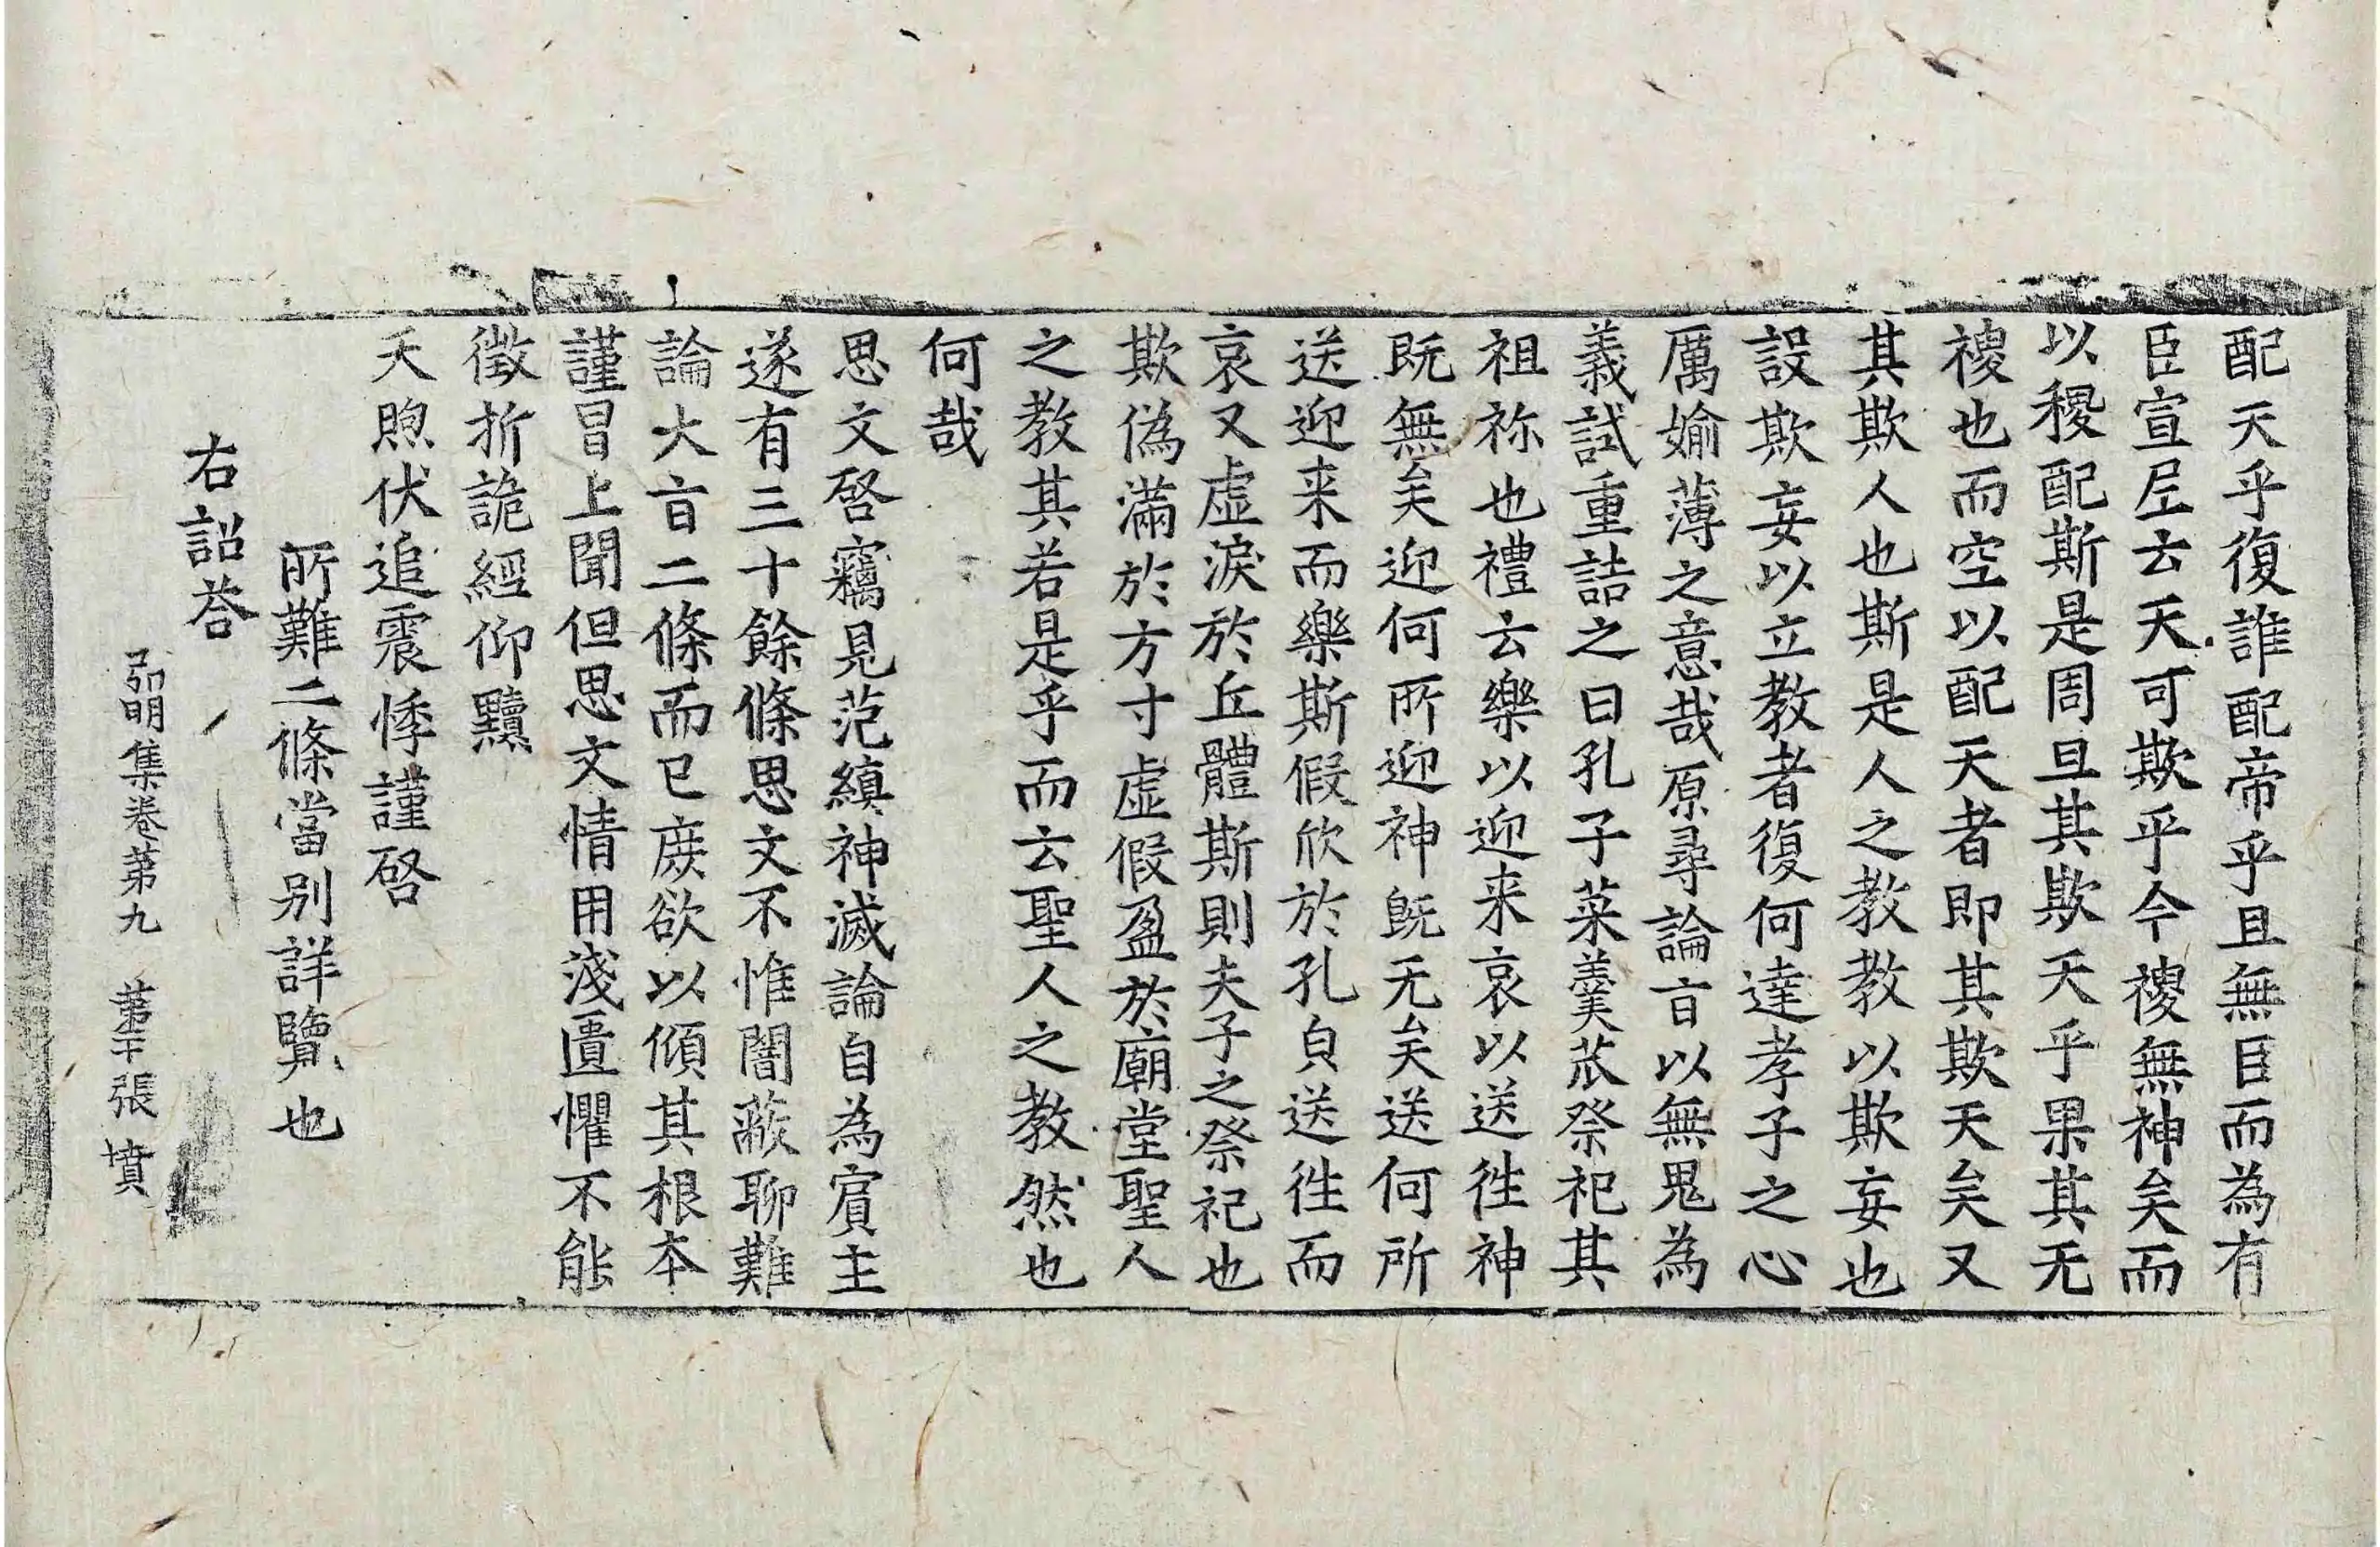 配天乎復誰配帝乎且無臣而為有
臣宣尼云天可欺乎今稷無神矣而
以稷配斯是周旦其欺天乎果其无
稷也而空以配天者即其欺天矣又
其欺人也斯是人之教教以欺妄也
設欺妄以立教者復何達孝子之心
厲媮薄之意哉原尋論旨以無鬼為
義試重詰之曰孔子菜羹苽祭祀其
祖祢也禮云樂以迎来哀以送徃神
既無矣迎何所迎神既无矣送何所
送迎来而樂斯假欣於孔皃送徃而
哀又虛淚於丘體斯則夫子之祭祀也
欺偽滿於方寸虛假盈於廟堂聖人
之教其若是乎而云聖人之教然也
何哉
思文啓竊見范縝神滅論自為賓主
遂有三十餘條思文不惟闇蔽聊難
論大旨二條而已庻欲以傾其根本
謹冒上聞但思文情用淺匱懼不能
徵折詭經仰黷
天照伏追震悸謹啓
所難二條當別詳覽也
右詔荅
弘明集卷第九 第二十張 墳